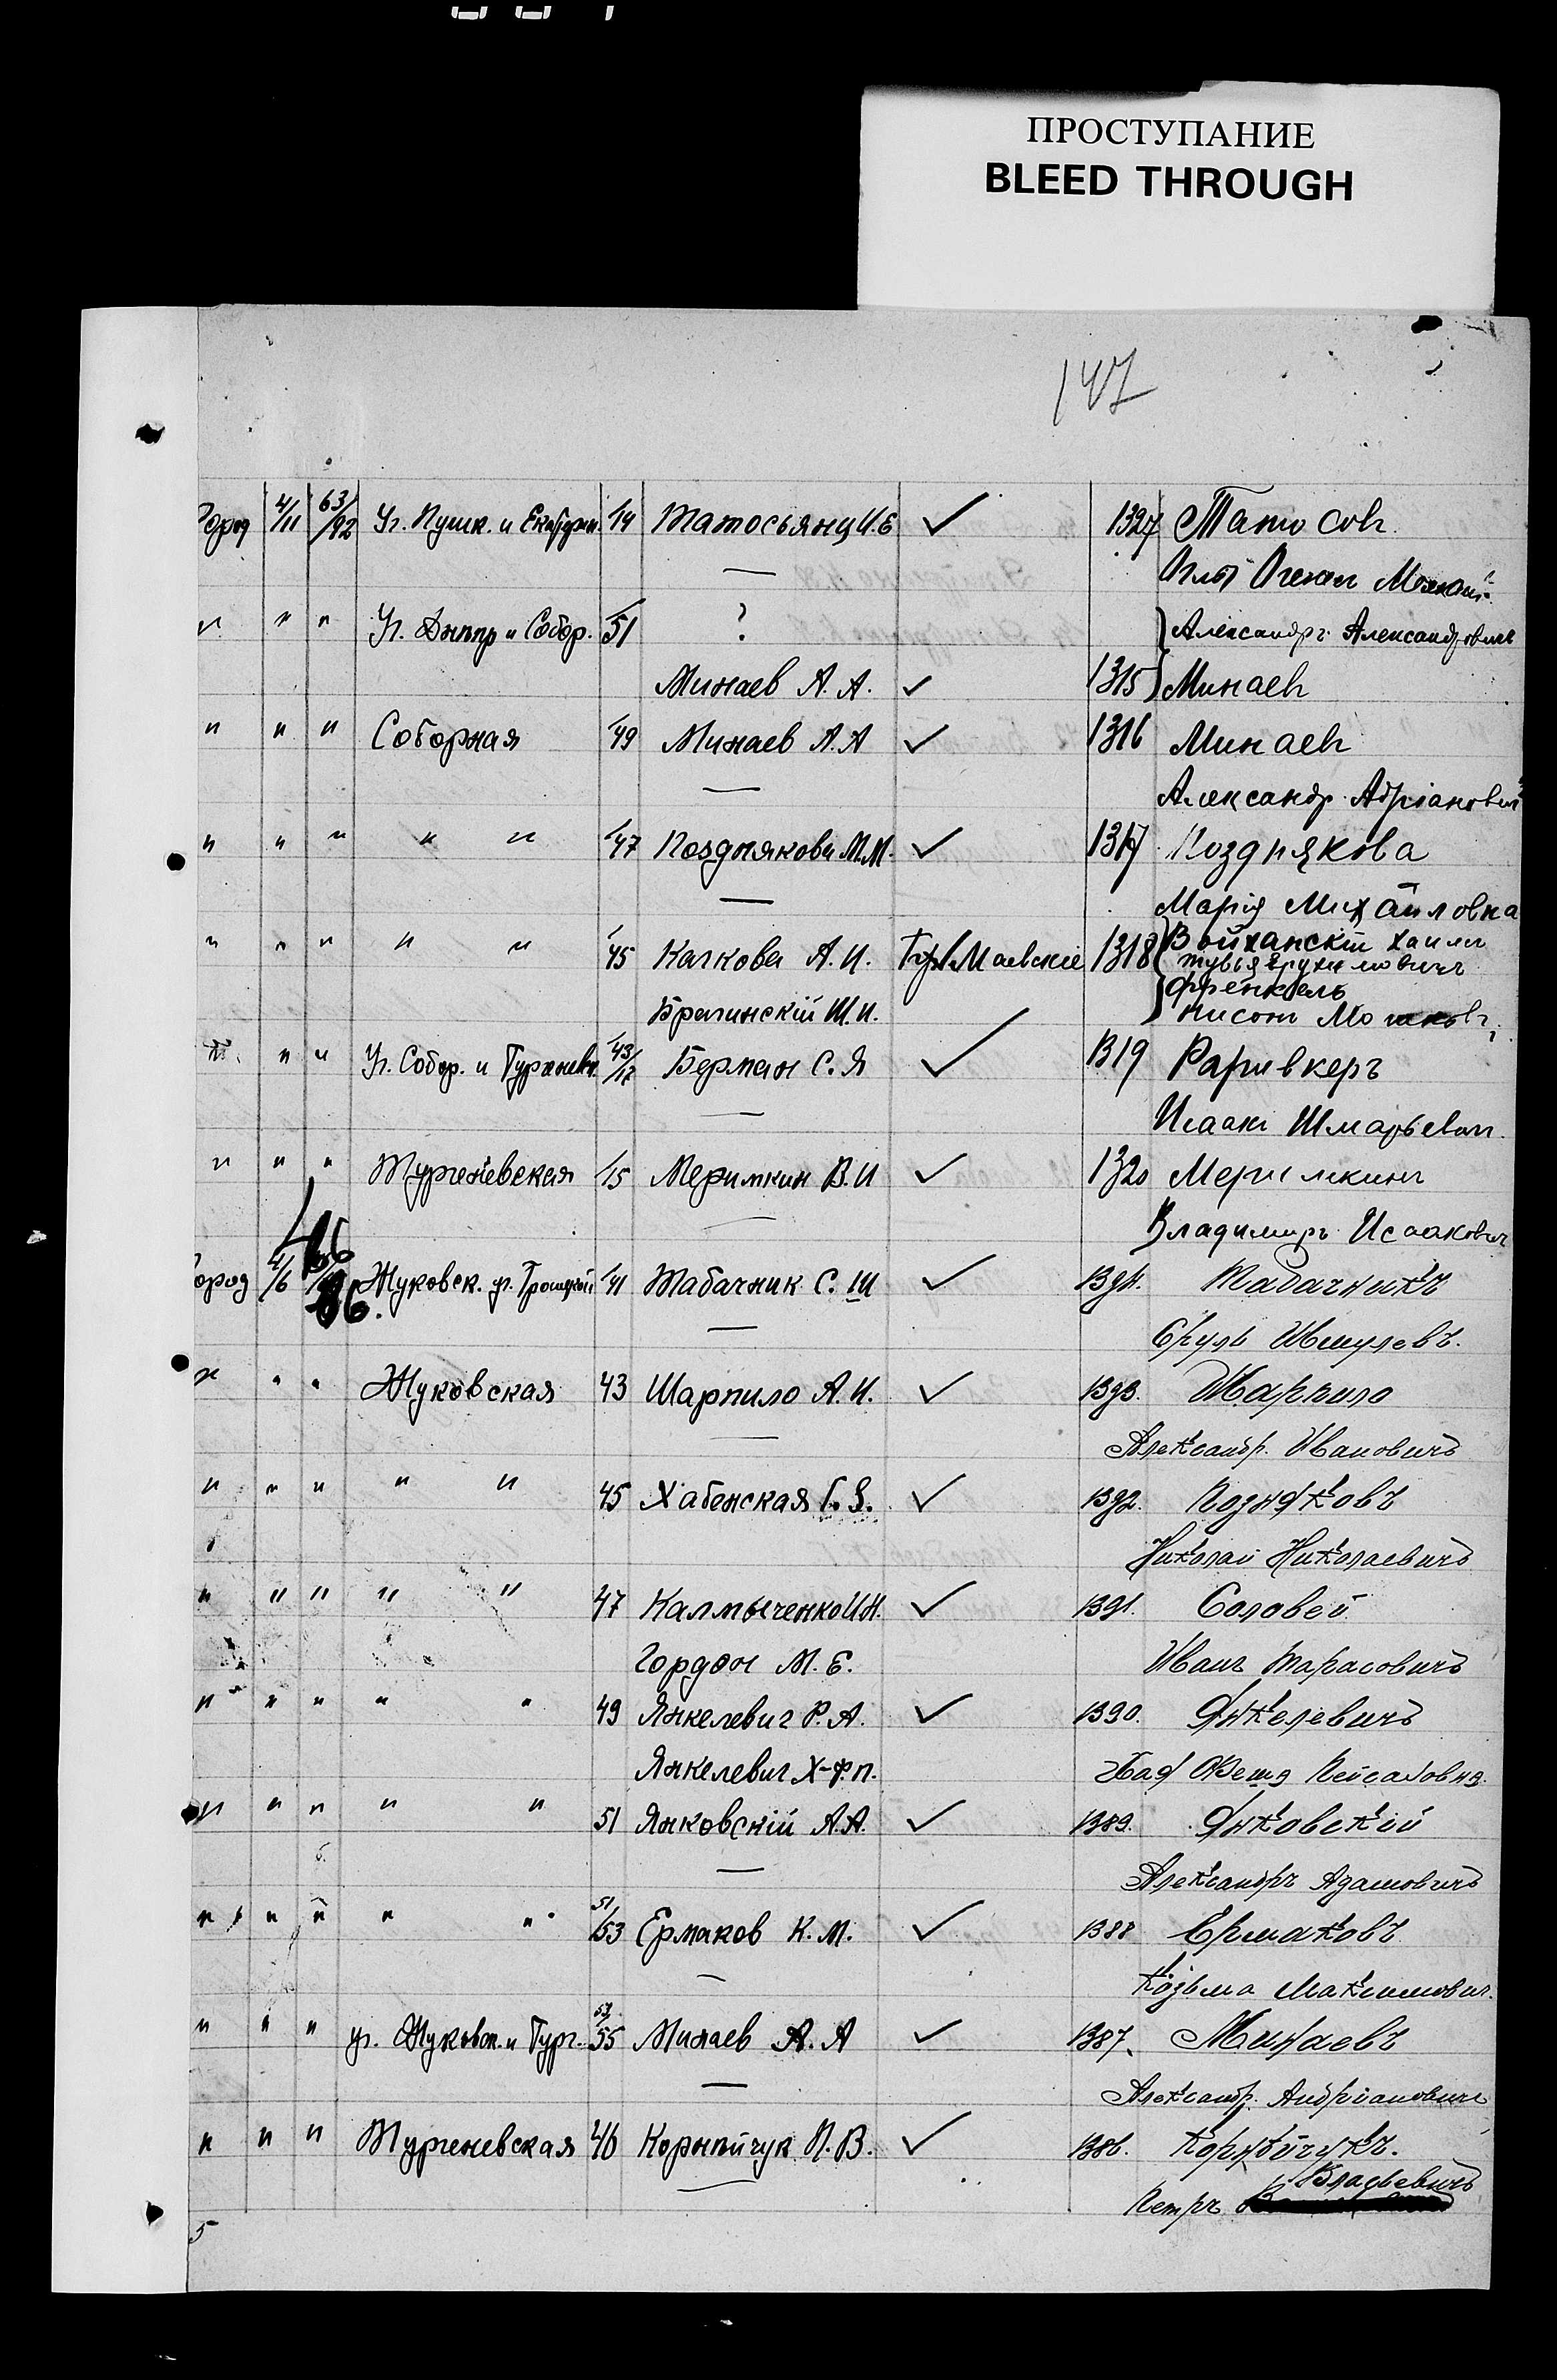 ПРОСТУПАНИЕ
BLEED THROUGH
147
Город 4/11 63/92 Уг. Пушк. и 14 Татосьянц И.Е ✓ 1327 Татосовъ
—
" " " Уг. Днппр и Собор. 51 ? Александръ Александровичъ
Минаев А. А. ✓ 1315 Минаевъ
" " " Соборная 49 Минаев А. А ✓ 1316 Минаевъ
— Александр. Адріанович
" " " " " 47 Позднякова М.М. ✓ 1317 Позднякова
— Марія Михайловна
" " " " " 45 Качкова А. И. Маевскіе 1318 Войханскій Хаимъ
Тувья
Френкель
Брагинскій Ш. И. Нисонъ
" " Уг. Собор. и Тургенев. 43/17 Берман С. Я ✓ 1319 Раривкеръ
— Исаакъ Шмарьевич
" " " Тургеневская 15 Меримкин В. И ✓ 1320 Меримкинъ
— Владимиръ Исаакович
Город 4/6 86. Жуковск. уг. Троицкой 41 Табачник С. Ш ✓ 1394. Табачникъ
— Сруль Ишулевъ.
" " " Жуковская 43 Шарпило А. И. ✓ 1393. Шарпило
— Александр. Ивановичъ
" " " " " 45 Хабенская ✓ 1392. Поздняковъ
Николай Николаевичъ
" " " " " 47 Калмыченко И.Н. ✓ 1391. Соловей
Гордон М. Е. Иванъ Тарасовичъ
" " " " " 49 Янкелевич Р. А. ✓ 1390. Янкелевичъ
Янкелевич Х-Ф. П. Хая Фейга Пейсаховна.
" " " " " 51 Янковскій А. А. ✓ 1389. Янковскій
— Александръ Адамовичъ
" " " " " 51/53 Ермаков К. М. ✓ 1388 Ермаковъ
— Козьма Максимович.
" " " уг. Жуковск. и Тург. 53/55 Минаев А. А ✓ 1387. Минаевъ
— Александр. Андріановичъ
" " " Тургеневская 46 Корнійчук П. В. ✓ 1386. Корнійчукъ.
— Власьевичъ
Петръ
5